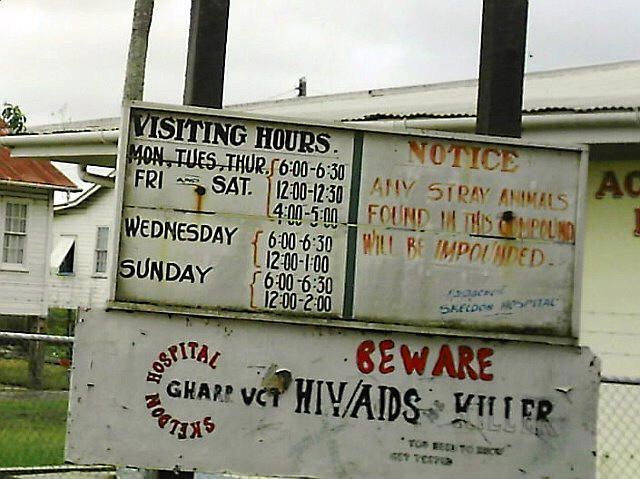 VISITING HOURS.
MON, TUES, THUR, 6:00-6:30
FRI AND SAT. 12:00-12:30
4:00-5:00
WEDNESDAY 6:00-6:30
12:00-1:00
SUNDAY 6:00-6:30
12:00-2:00
NOTICE
ANY STRAY ANIMALS
FOUND IN THIS COMPOUND
WILL BE IMPOUNDED.
SKELDON HOSPITAL
SKELDON HOSPITAL
GHARP VCT
BEWARE
HIV/AIDS KILLER
"YOU NEED TO KNOW"
GET TESTED
AC